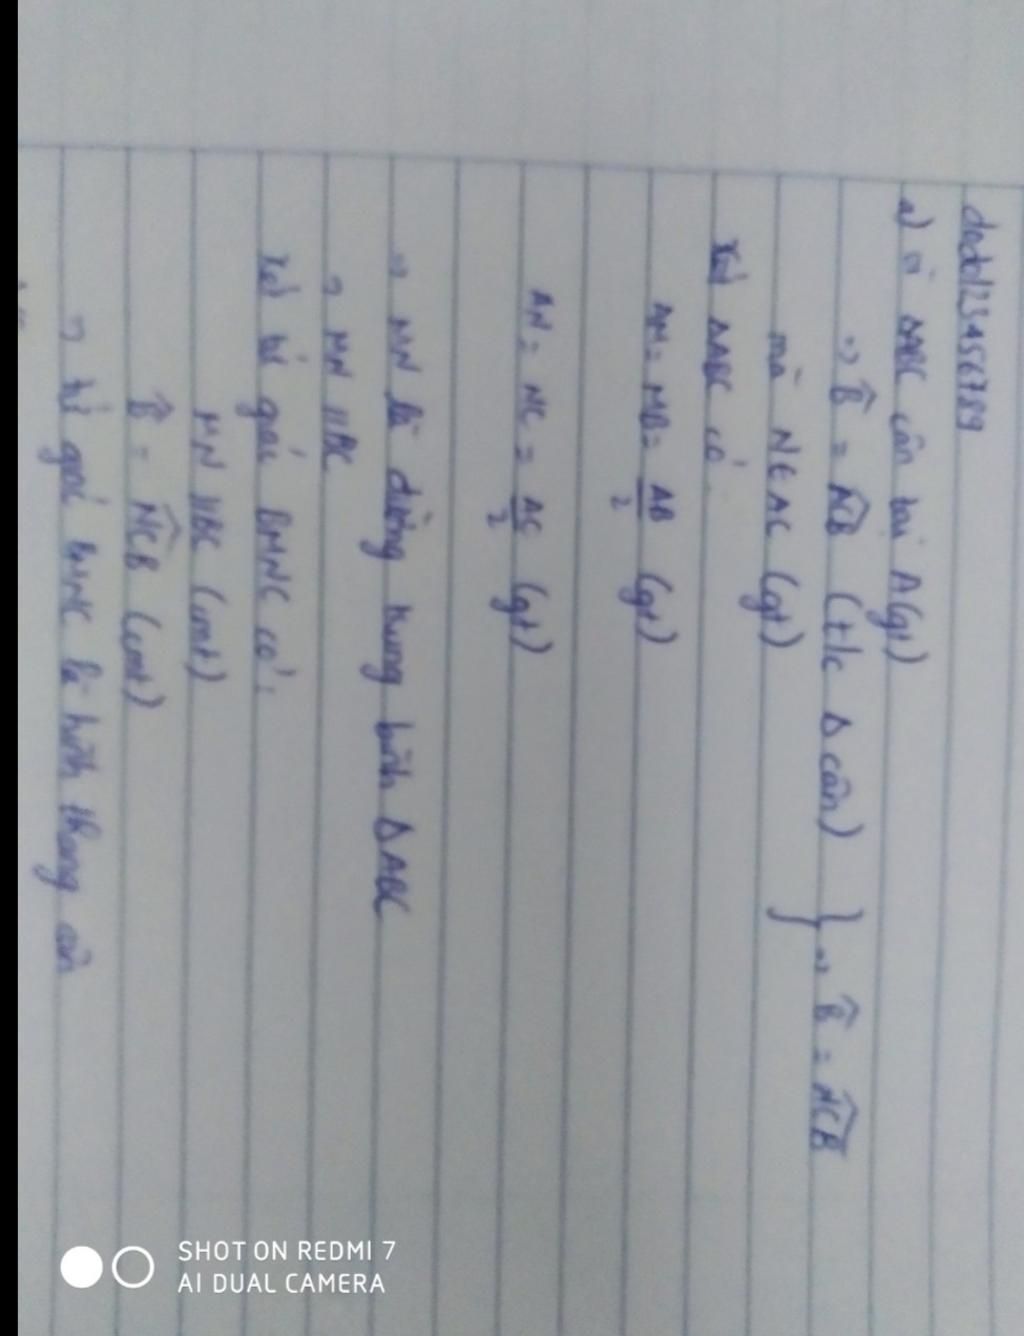 dodo123456789
a) vì ΔABC cân tại A(gt)
=> B̂ = ÂCB (t/c Δ cân) } => B̂ = N̂CB
mà N ∈ AC (gt)
Xét ΔABC có
AM = MB = AB/2 (gt)
AN = NC = AC/2 (gt)
=> MN là đường trung bình ΔABC
=> MN // BC
Xét tứ giác BMNC có:
MN // BC (cmt)
B̂ = N̂CB (cmt)
=> tứ giác BMNC là hình thang cân
SHOT ON REDMI 7
AI DUAL CAMERA